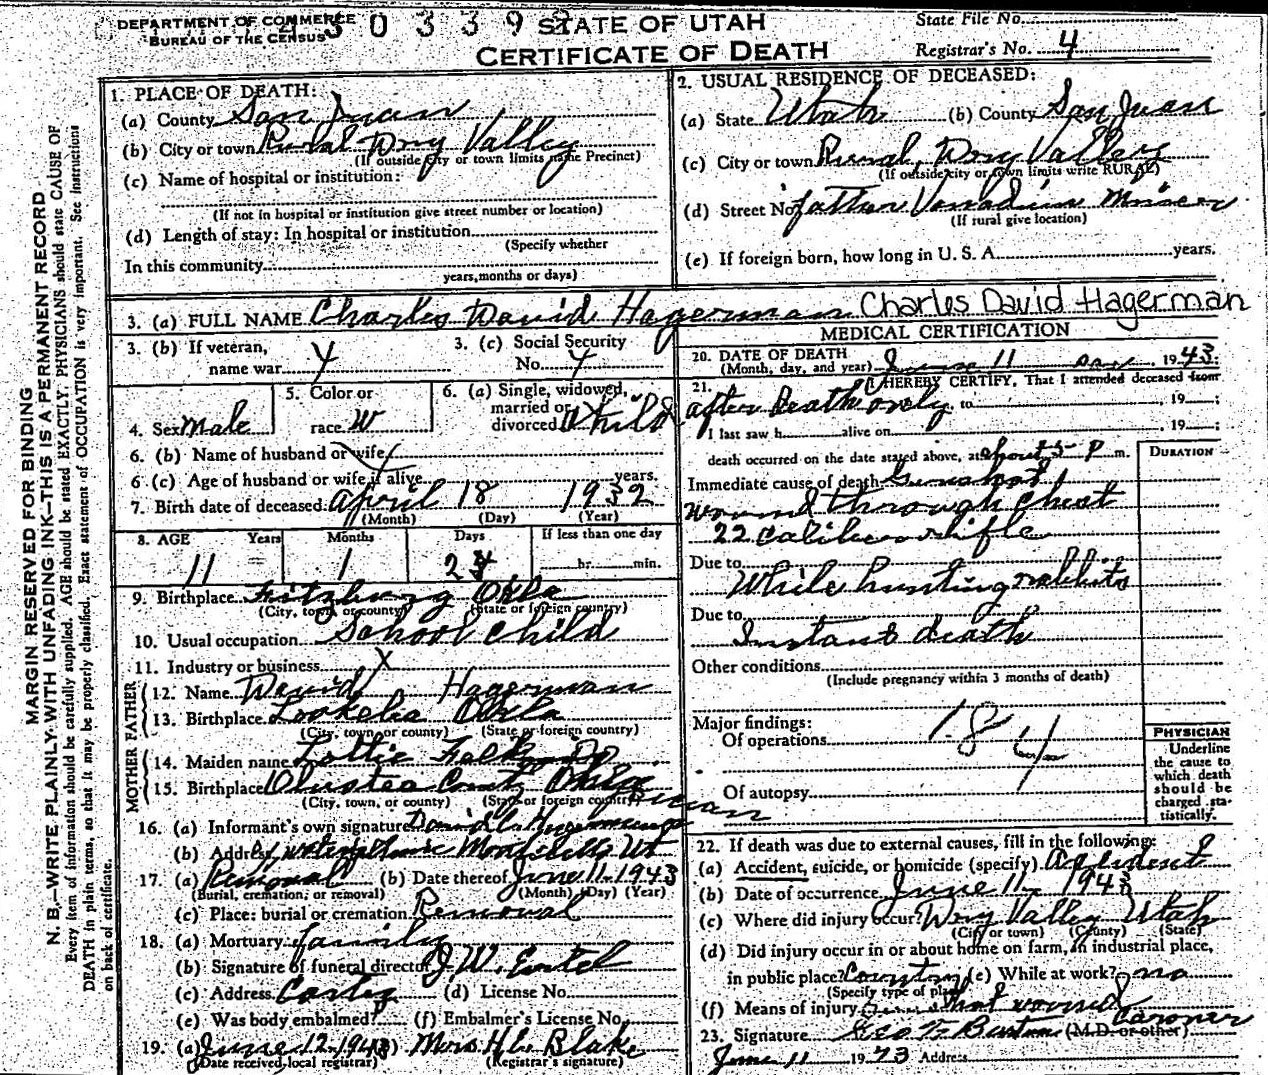 DEPARTMENT OF COMMERCE
BUREAU OF THE CENSUS
30339
STATE OF UTAH
CERTIFICATE OF DEATH
State File No.
Registrar's No. 4
MARGIN RESERVED FOR BINDING
N. B.—WRITE PLAINLY WITH UNFADING INK—THIS IS A PERMANENT RECORD
Every item of information should be carefully supplied. AGE should be stated EXACTLY, PHYSICIANS should state CAUSE OF
DEATH in plain terms, so that it may be properly classified. Exact statement of OCCUPATION is very important. See instructions
on back of certificate.
1. PLACE OF DEATH:
(a) County San Juan
(b) City or town Rural Dry Valley
(If outside city or town limits name Precinct)
(c) Name of hospital or institution:
(If not in hospital or institution give street number or location)
(d) Length of stay: In hospital or institution
(Specify whether
In this community
years, months or days)
2. USUAL RESIDENCE OF DECEASED:
(a) State Utah (b) County San Juan
(c) City or town Rural, Dry Valley
(If outside city or town limits write RURAL)
(d) Street No. father Vanadium Miner
(If rural give location)
(e) If foreign born, how long in U. S. A. years.
3. (a) FULL NAME Charles David Hagerman Charles David Hagerman
3. (b) If veteran,
name war
3. (c) Social Security
No.
4. Sex Male
5. Color or
race W
6. (a) Single, widowed,
married or
divorced Child
6. (b) Name of husband or wife
6. (c) Age of husband or wife if alive years.
7. Birth date of deceased April 18 1932
(Month) (Day) (Year)
8. AGE Years Months Days If less than one day
11 1 24 hr. min.
9. Birthplace Fitzburg Okla
(City, town, or county) (State or foreign country)
10. Usual occupation School Child
11. Industry or business X
FATHER
12. Name David Hagerman
13. Birthplace Lookeba Okla
(City, town, or county) (State or foreign country)
MOTHER
14. Maiden name Lottie
15. Birthplace Olustee County Okla
(City, town, or county) (State or foreign country)
16. (a) Informant's own signature David C. Hagerman
(b) Address Monticello Ut
17. (a) Removal (b) Date thereof June 11-1943
(Burial, cremation, or removal) (Month) (Day) (Year)
(c) Place: burial or cremation Removal
18. (a) Mortuary family
(b) Signature of funeral director J. W. Ertel
(c) Address Cortez (d) License No.
(e) Was body embalmed? (f) Embalmer's License No.
19. (a) June 12-1943 Mrs. H. C. Blake
(Date received local registrar) (Registrar's signature)
MEDICAL CERTIFICATION
20. DATE OF DEATH
(Month, day, and year) June 11 1943
21. I HEREBY CERTIFY, That I attended deceased from
after death only to 19 ;
I last saw h alive on , 19 ;
death occurred on the date stated above, at about P m.
DURATION
Immediate cause of death Gunshot
wound through chest
22 calibre rifle
Due to
While hunting rabbits
Due to
Instant death
Other conditions
(Include pregnancy within 3 months of death)
Major findings:
Of operations
184
Of autopsy
PHYSICIAN
Underline
the cause to
which death
should be
charged sta-
tistically.
22. If death was due to external causes, fill in the following:
(a) Accident, suicide, or homicide (specify) Accident
(b) Date of occurrence June 11 1943
(c) Where did injury occur? Dry Valley Utah
(City or town) (County) (State)
(d) Did injury occur in or about home on farm, in industrial place,
in public place? Country (e) While at work? no
(Specify type of place)
(f) Means of injury shot wound
Coroner
23. Signature (M.D. or other)
June 11 1943 Address